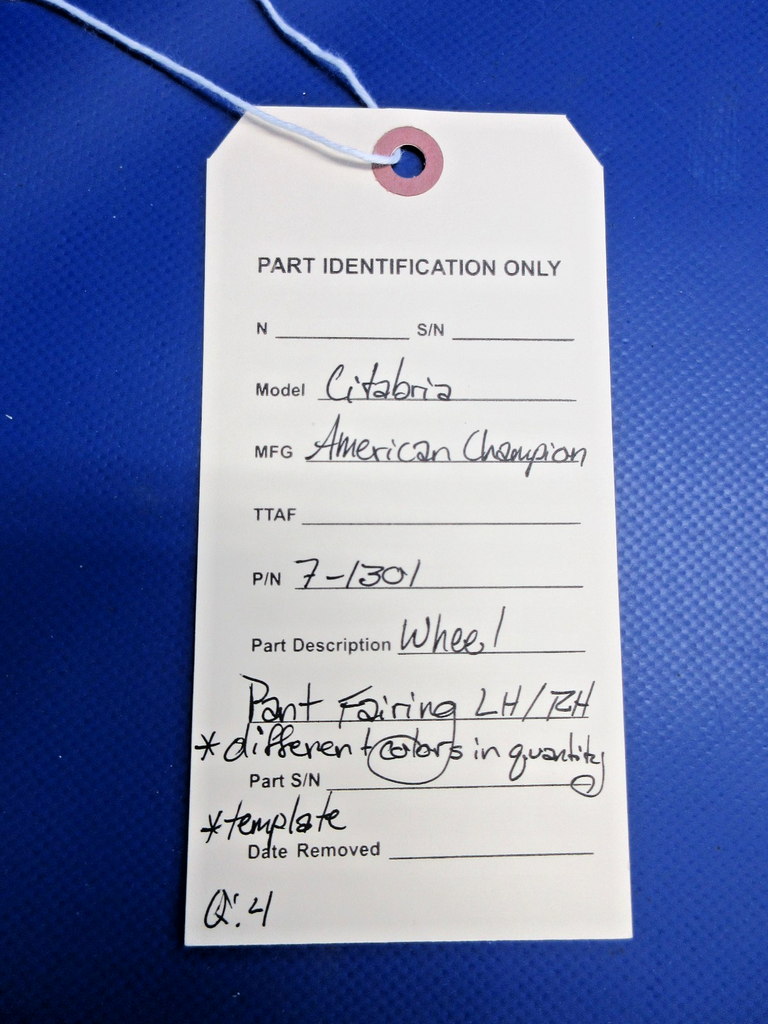 PART IDENTIFICATION ONLY
N ____________ S/N ____________
Model Citabria
MFG American Champion
TTAF ____________
P/N 7-1301
Part Description Wheel
Pant Fairing LH/RH
* different colors in quantity
Part S/N ____________
* template
Date Removed ____________
Q: 4